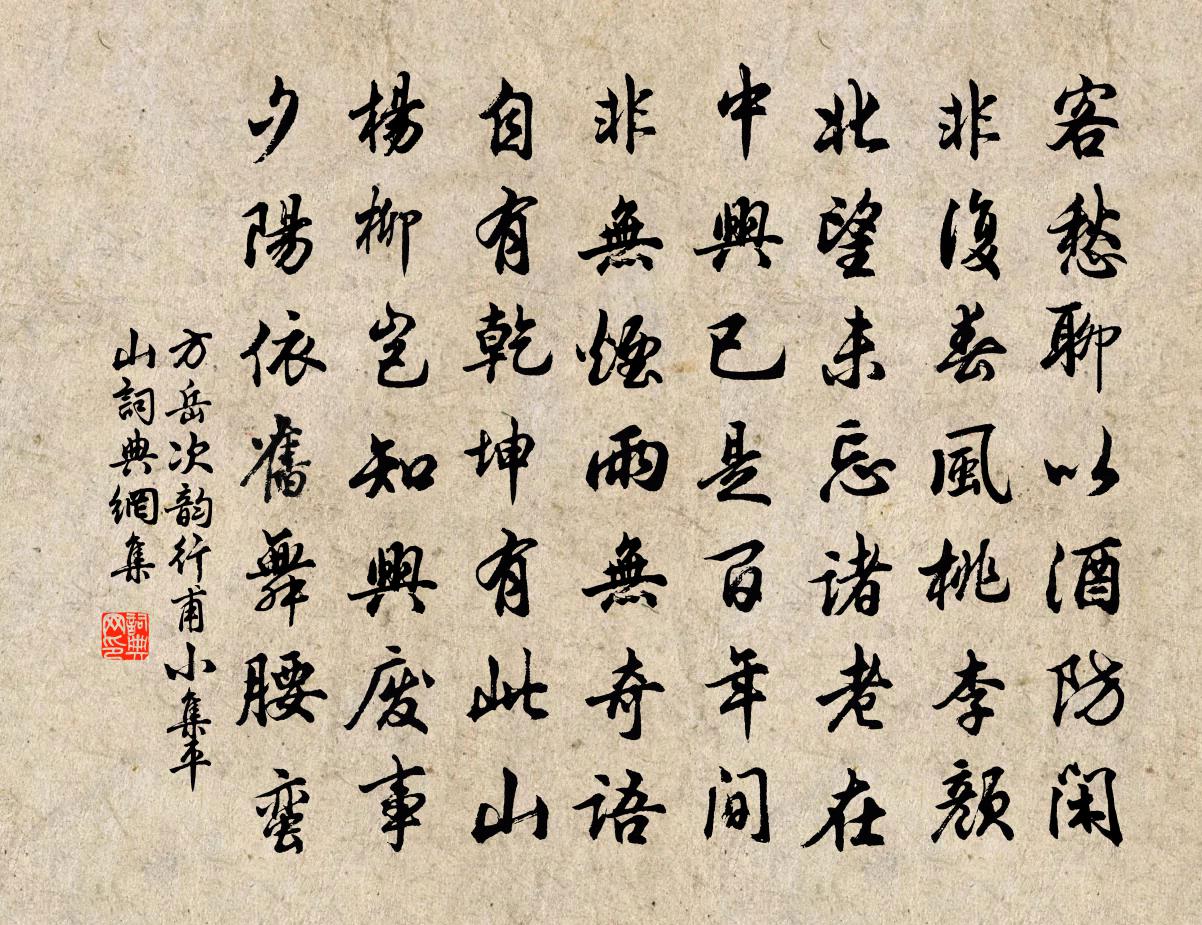 客愁聊以酒防閑
非復春風桃李顏
北望未忘諸老在
中興已是百年間
非無煙雨無奇語
自有乾坤有此山
楊柳豈知興廢事
夕陽依舊舞腰蠻
方岳次韵行甫小集平
山詞典網集
詞典
网印